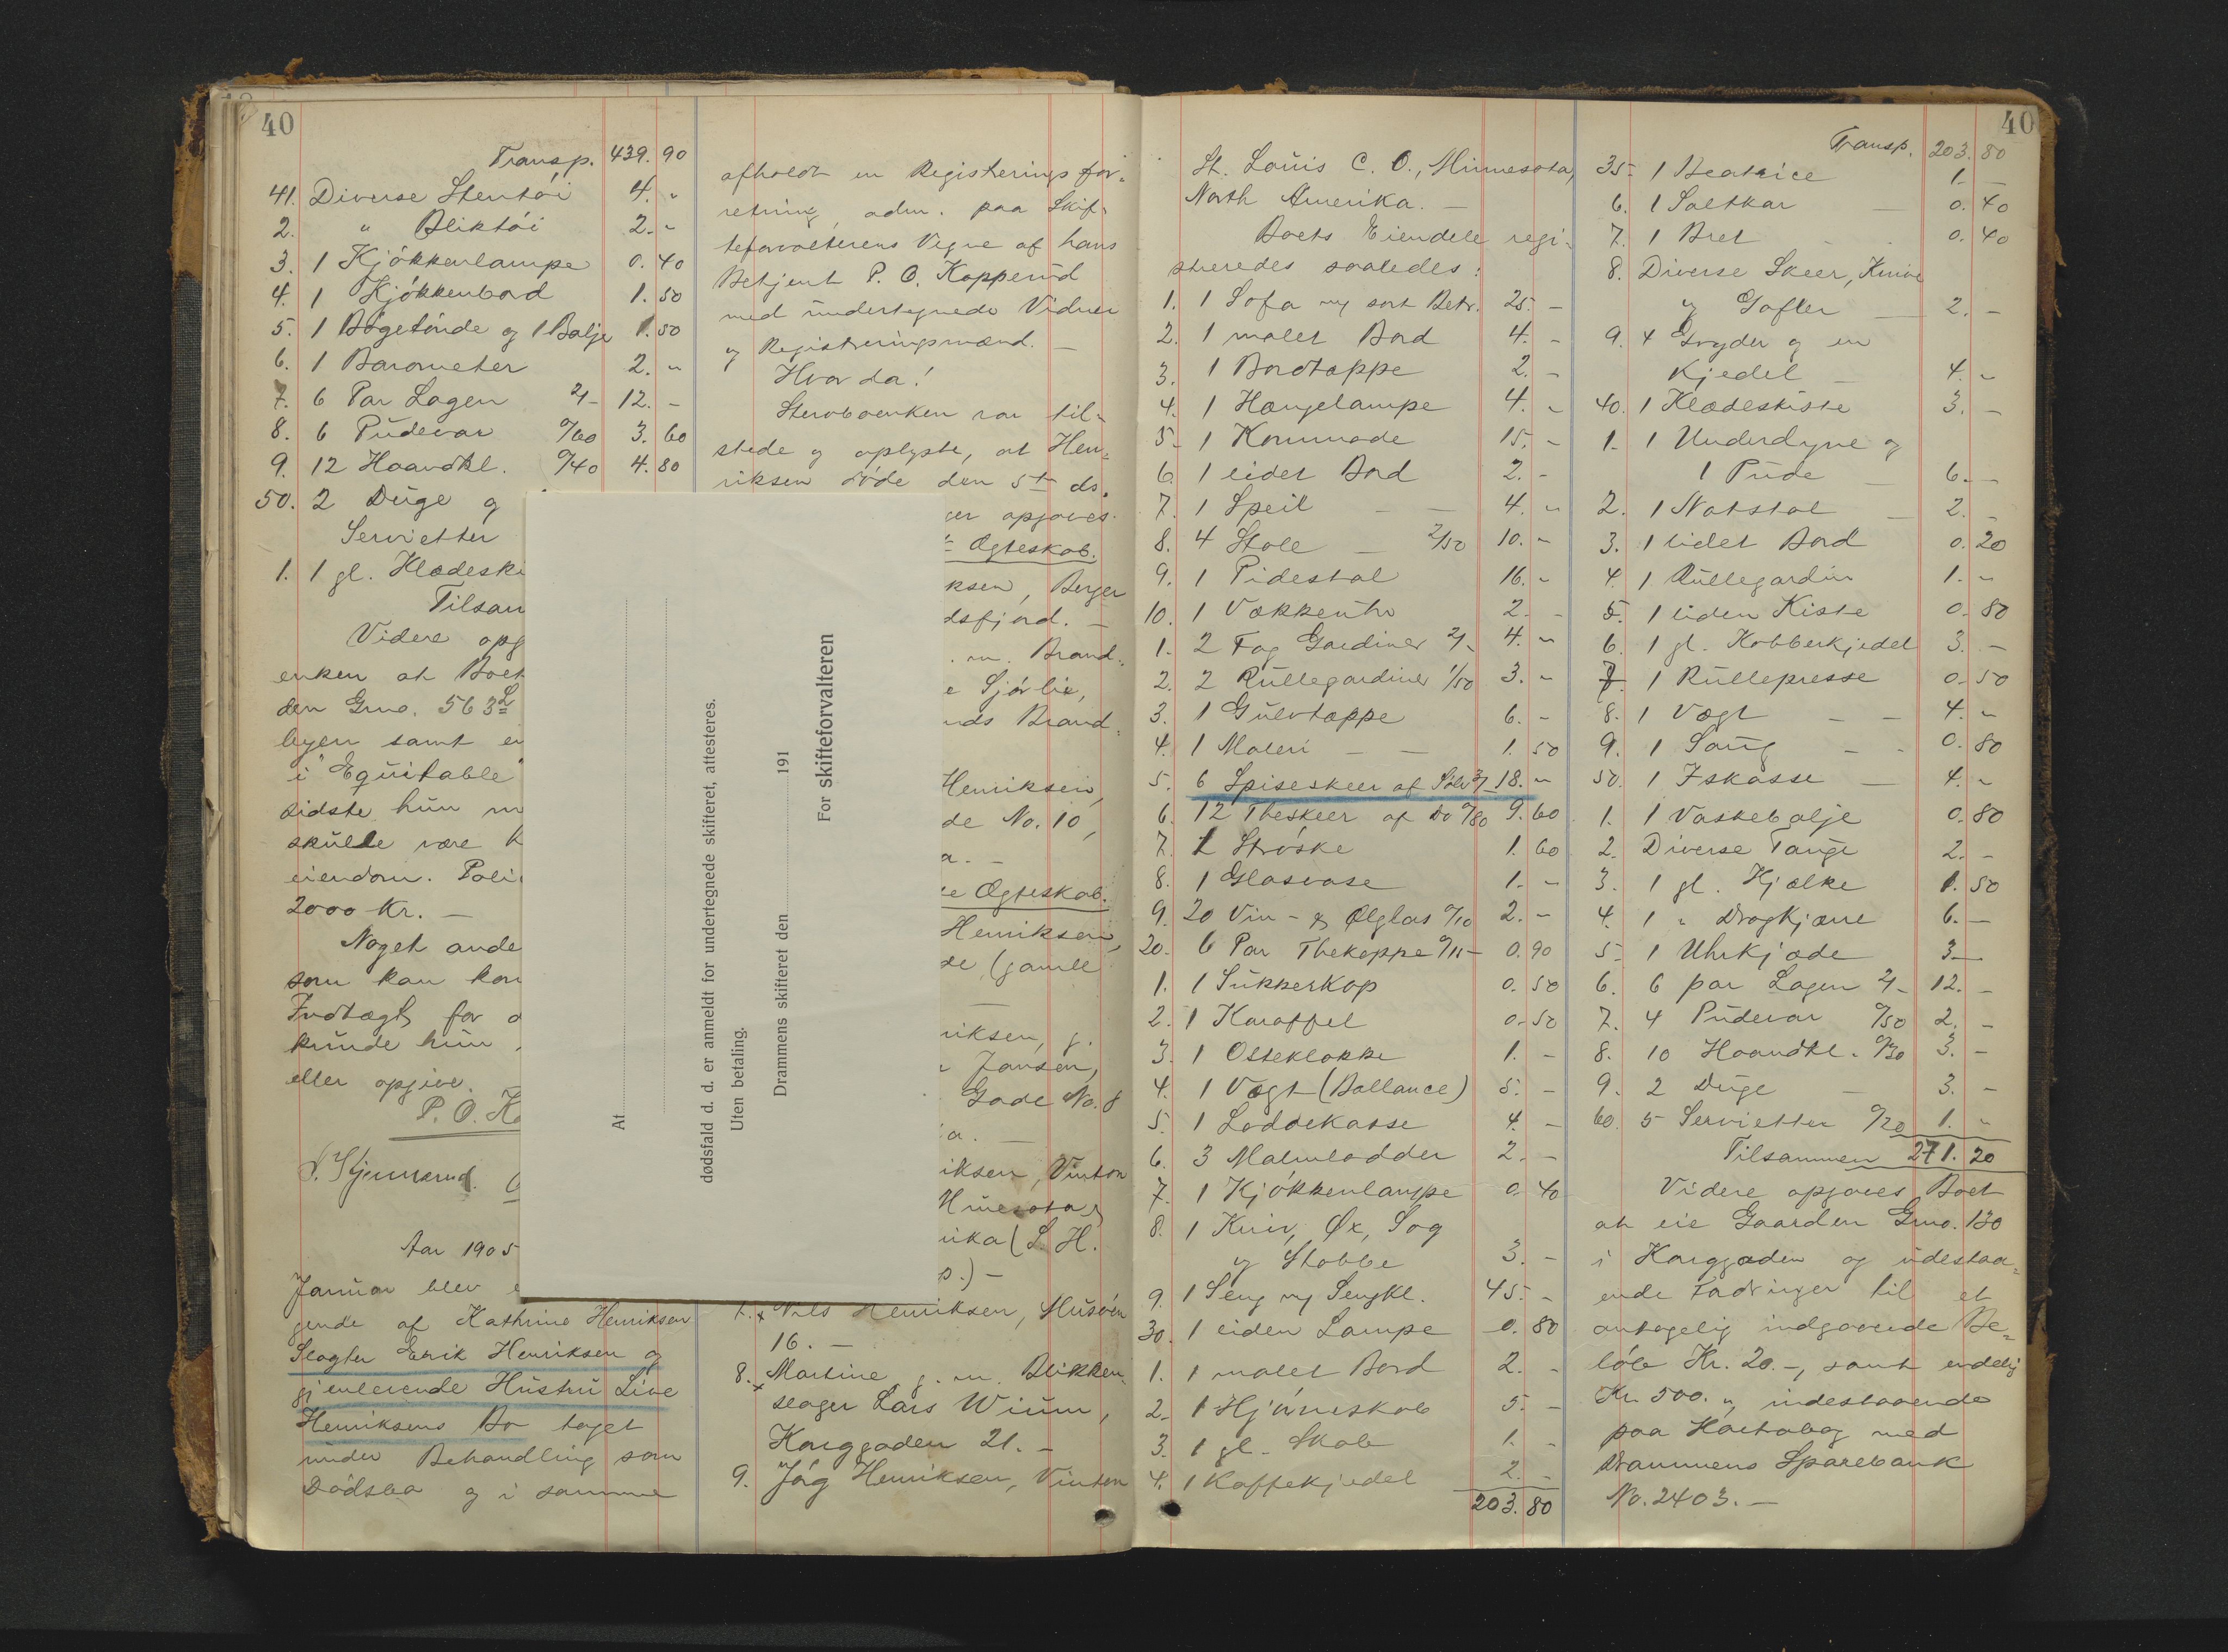 40
Transp. 439. 90
41. Diverse Stentöi 4. "
2. " Bliktöi 2. "
3. 1 Kjökkenlampe 0. 40
4. 1 Kjökkenbord 1. 50
5. 1 Bögetönde og 1 Balje 1. 50
6. 1 Barometer 2. "
7. 6 Par Lagen 2/- 12. -
8. 6 Pudevar 0/60 3. 60
9. 12 Haandkl. 0/40 4. 80
50. 2 Duge og
Servietter
1. 1 gl. Klædeski
Tilsam
Videre opg
enken at Boet
den Grno. 563
legen samt en
i "Equitable"
sidste hun m
skulle være
eiendom. Poli
2000 Kr. -
Noget ande
som kan kom
Indtægt for
kunde hun
eller opgive.
P. O. Ko
Aar 1905
Januar blev
gende af Kathrine Henriksen
Slagter Erik Henriksen og
gjenlevende Hustru Live
Henriksens Bo taget
under Behandling som
Dödsbo og i samme
afholdt en Registeringsfor-
retning, adm. paa Skif-
teforvalterens Vegne af hans
Betjent P. O. Kopperud
med undertegnede Vidner
og Registreringsmænd. -
Hvor da!
Stervboenken var til-
stede og oplyste, at Hen-
riksen döde den 5te ds.
ger opgaves
Ægteskab.
ksen, Berger
dsfjord. -
. m. Brand-
e Sjörlie,
nds Brand-
Henriksen,
de No. 10,
a. -
te Ægteskab.
Henriksen,
de (gamle
riksen, g.
r Jansen,
Gade No. 8
a. -
iksen, Vinton
ika (S. H.
o.) -
Nils Henriksen, Husöen
16. -
8. Martine g. m. Blikken-
slager Lars Wium,
Konggaden 21. -
9. Jög Henriksen, Vinton
At
dødsfald d. d. er anmeldt for undertegnede skifteret, attesteres.
Uten betaling.
Drammens skifteret den 191
For skifteforvalteren
40
St. Louis C. O., Minnesota,
North Amerika. -
Boets Eiendele regi-
streredes saaledes:
1. 1 Sofa m/ sort Betr. 25. -
2. 1 malet Bord 4. -
3. 1 Bordtæppe 2. -
4. 1 Hængelampe 4. -
5. 1 Kommode 15. -
6. 1 lidet Bord 2. -
7. 1 Speil 4. "
8. 4 Stole 2/50 10. -
9. 1 Pidestal 16. "
10. 1 Vækkeuhr 2. -
1. 2 Fag Gardiner 2/- 4. "
2. 2 Rullegardiner 1/50 3. "
3. 1 Gulvtæppe 6. -
4. 1 Maleri 1. 50
5. 6 Spiseskeer af Sölv 3/- 18. "
6. 12 Theskeer af Do 0/80 9. 60
7. 1 Ströske 1. 60
8. 1 Glasvase 1. -
9. 20 Vin- & Ølglas 0/10 2. -
20. 6 Par Thekoppe 0/15 0. 90
1. 1 Sukkerkop 0. 50
2. 1 Karaffel 0. 50
3. 1 Osteklokke 1. -
4. 1 Vægt (Ballance) 5. -
5. 1 Loddekasse 4. -
6. 3 Malmlodder 2. -
7. 1 Kjökkenlampe 0. 40
8. 1 Kniv, Øx, Sag
og Stabbe 3. -
9. 1 Seng m/ Sengkl. 45. -
30. 1 liden Lampe 0. 80
1. 1 malet Bord 2. -
2. 1 Hjörneskab 5. -
3. 1 gl. Skab 1. -
4. 1 Kaffekjedel 2. -
203. 80
40
Transp. 203. 80
35. 1 Beatrice 1. -
6. 1 Saltkar 0. 40
7. 1 Bret 0. 40
8. Diverse Skeer, Knive
og Gafler 2. -
9. 4 Gryder og en
Kjedel 4. "
40. 1 Klædeskiste 3. -
1. 1 Underdyne og
1 Pude 6. -
2. 1 Natstol 2. -
3. 1 lidet Bord 0. 20
4. 1 Rullegardin 1. "
5. 1 liden Kiste 0. 80
6. 1 gl. Kobberkjedel 3. -
7. 1 Rullepresse 0. 50
8. 1 Vægt 4. "
9. 1 Saug 0. 80
50. 1 Iskasse 4. "
1. 1 Vaskebalje 0. 80
2. Diverse Tauge 2. -
3. 1 gl. Kjælke 1. 50
4. 1 " Dragkjærre 6. -
5. 1 Uhrkjæde 3. -
6. 6 par Lagen 2/- 12. -
7. 4 Pudevar 0/50 2. -
8. 10 Haandkl. 0/30 3. -
9. 2 Duge 3. -
60. 5 Servietter 0/20 1. "
Tilsammen 271. 20
Videre opgaves Boet
at eie Gaarden Grno. 130
i Konggaden og udestaa-
ende Fordringer til et
antagelig indgaaende Be-
löb Kr. 20. -, samt endelig
Kr. 500. ", indestaaende
paa Kontrabog med
Drammens Sparebank
No. 2403. -